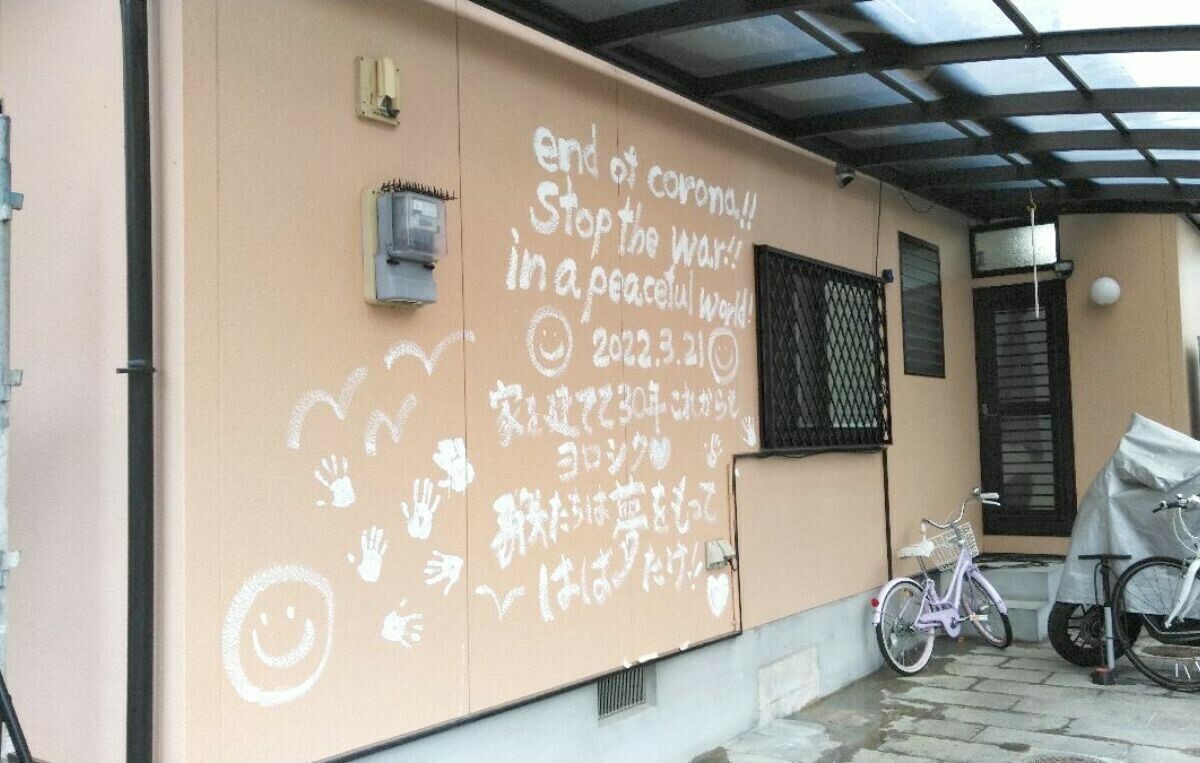 end of corona!!
Stop the war!!
in a peaceful world!
2022.3.21
家を建てて30年これからも
ヨロシク♥
たちは夢をもって
はばたけ!!